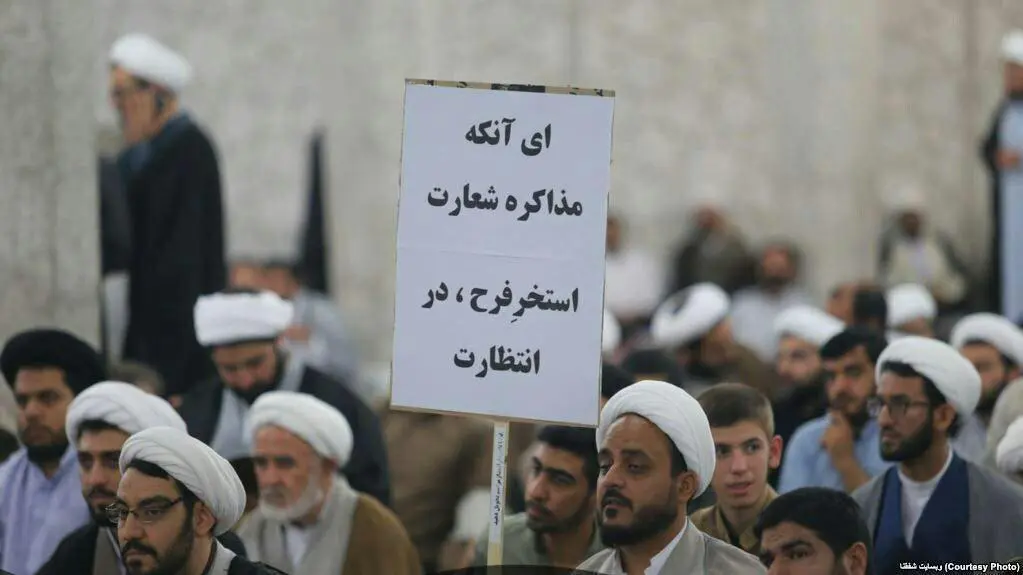 ای آنکه
مذاکره شعارت
استخرِفرح ، در
انتظارت
وبسایت شفقنا (Courtesy Photo)